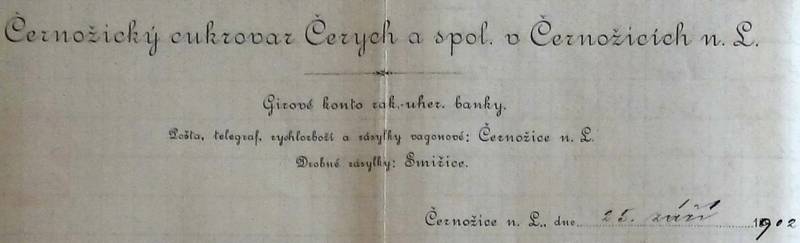 Černožický cukrovar Čerych a spol. v Černožicích n. L.
Girové konto rak.-uher. banky.
Pošta, telegraf, rychlozboží a zásylky vagonové: Černožice n. L.
Drobné zásylky: Smiřice.
Černožice n. L., dne 25. září 1902